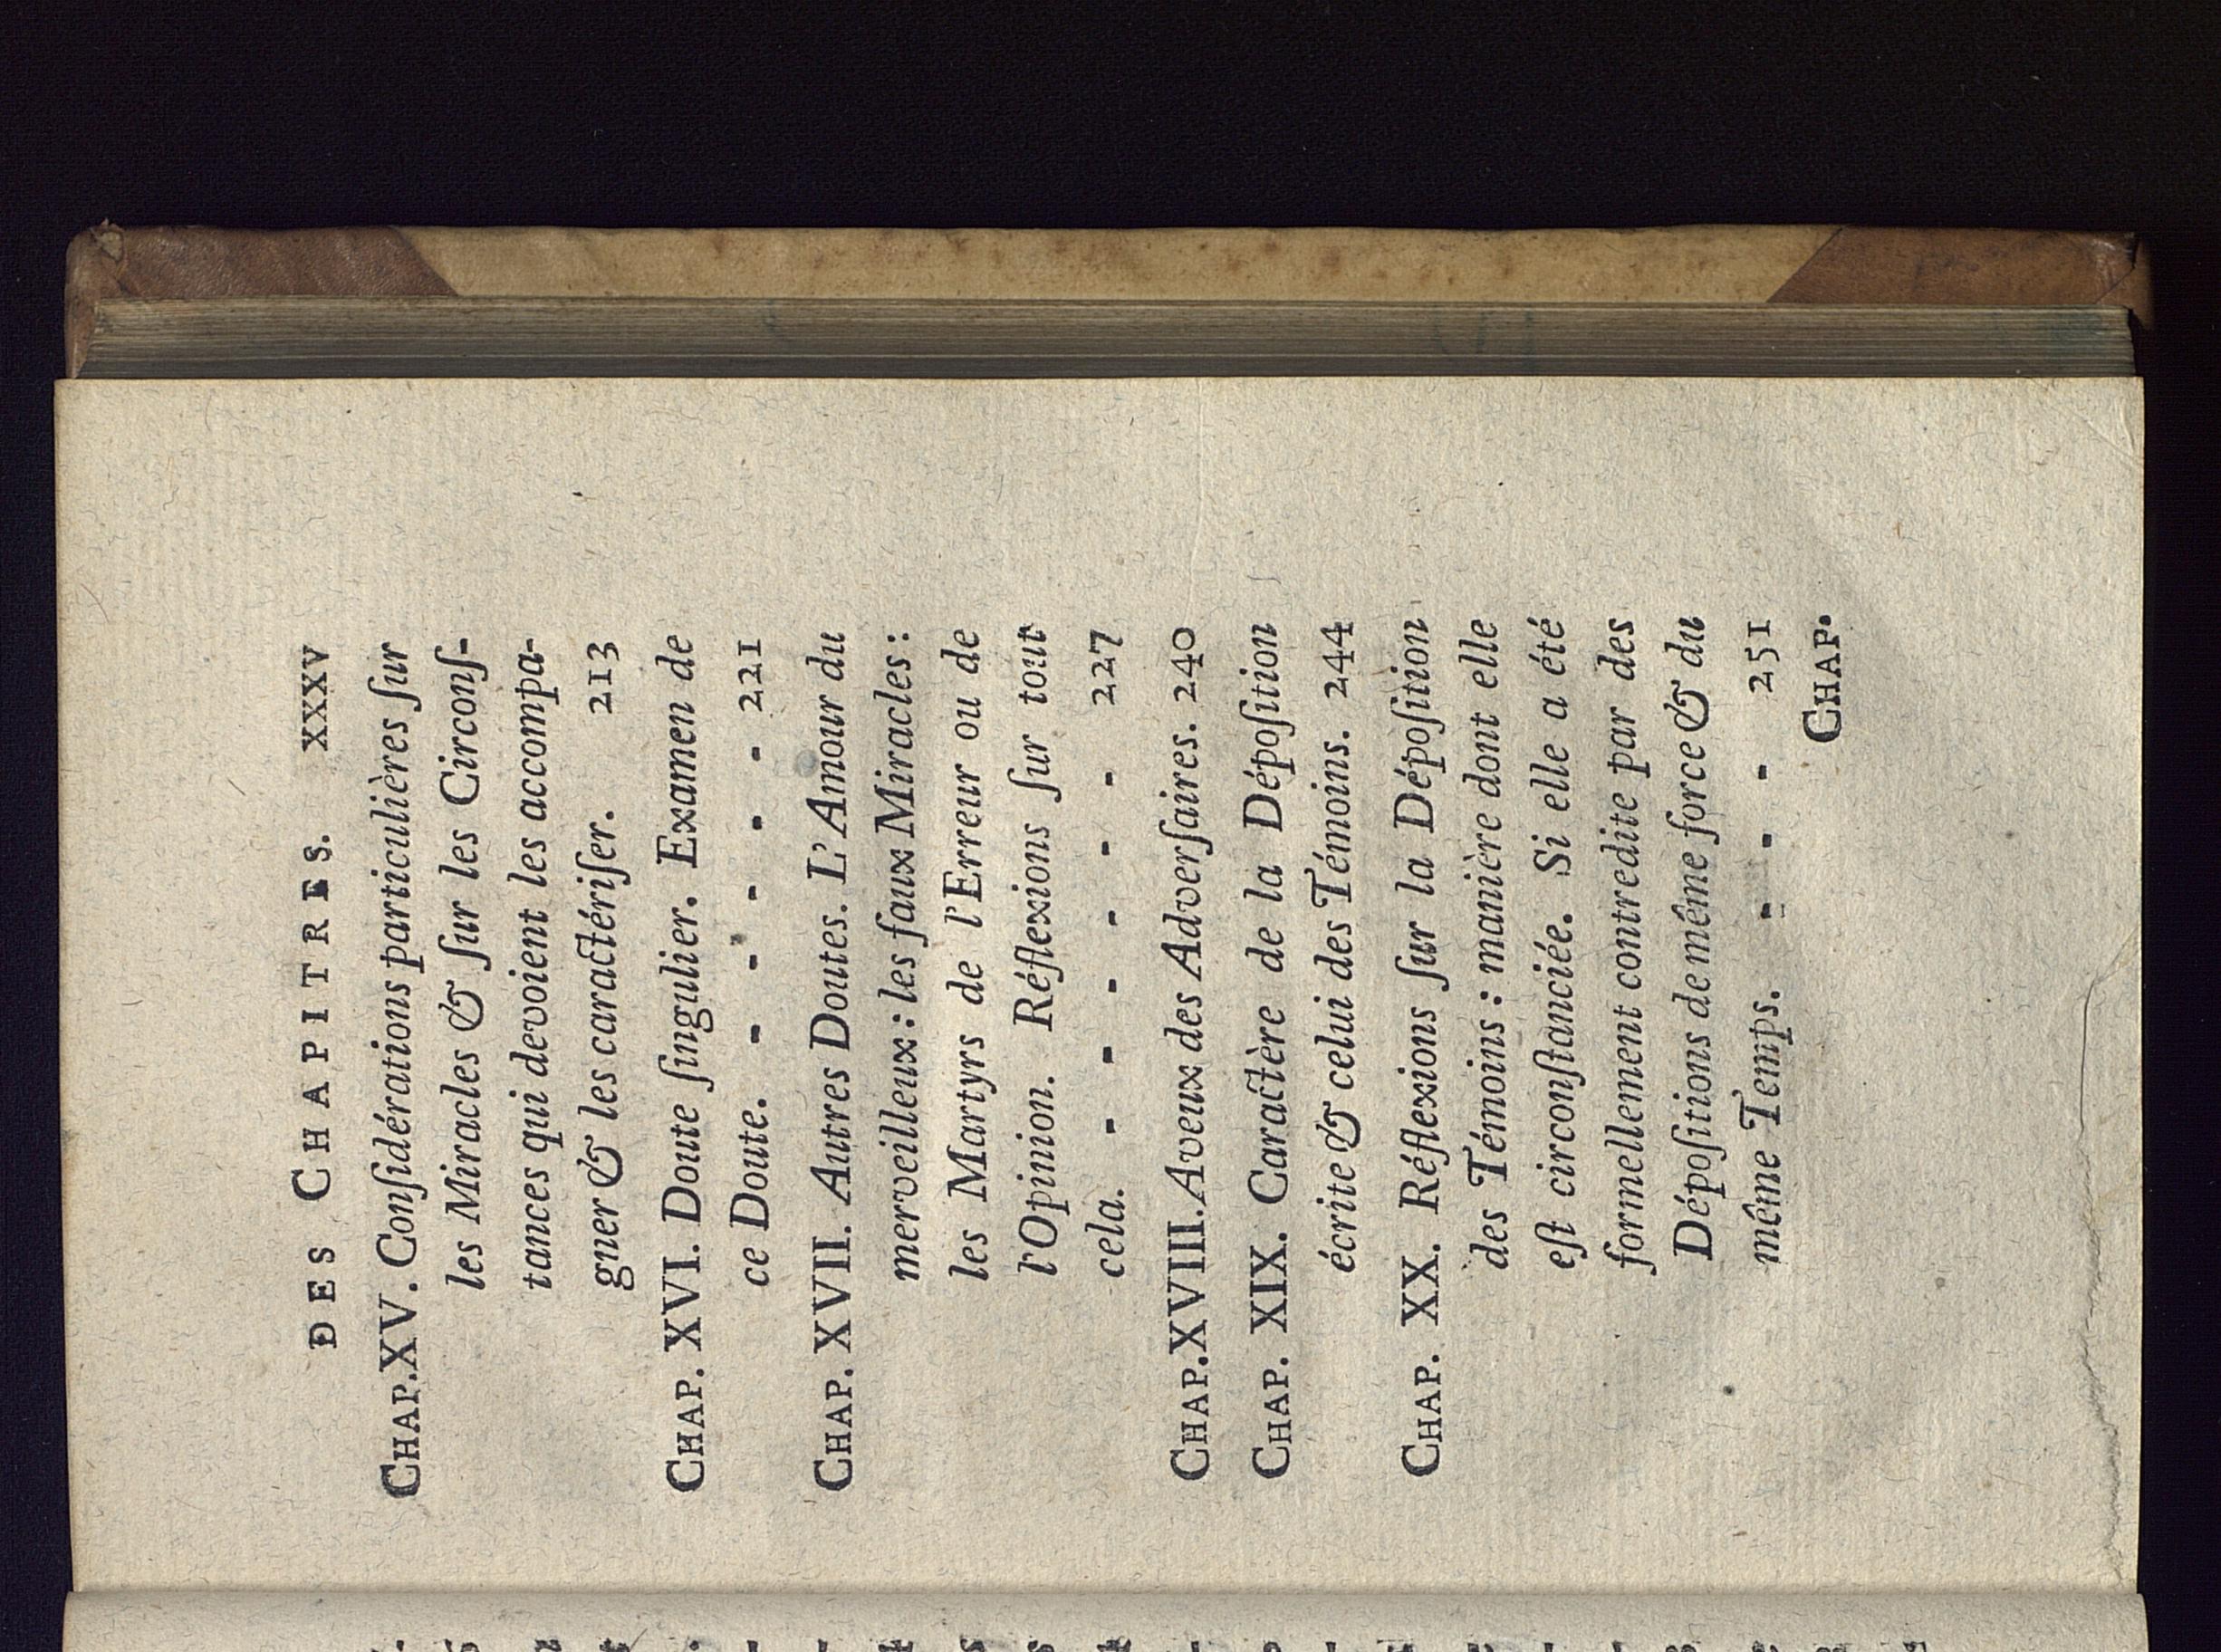 DES CHAPITRES. XXXV
CHAP.XV. Conſidérations particulières ſur
les Miracles & ſur les Circonſ-
tances qui devoient les accompa-
gner & les caractériſer. 213
CHAP. XVI. Doute ſingulier. Examen de
ce Doute. - - - - - 221
CHAP. XVII. Autres Doutes. L'Amour du
merveilleux: les faux Miracles:
les Martyrs de l'Erreur ou de
l'Opinion. Réflexions ſur tout
cela. - - - - - - 227
CHAP.XVIII.Aveux des Adverſaires. 240
CHAP. XIX. Caractère de la Dépoſition
écrite & celui des Témoins. 244
CHAP. XX. Réflexions ſur la Dépoſition
des Témoins: manière dont elle
eſt circonſtanciée. Si elle a été
formellement contredite par des
Dépoſitions de même force & du
même Temps. - - - 251
CHAP.